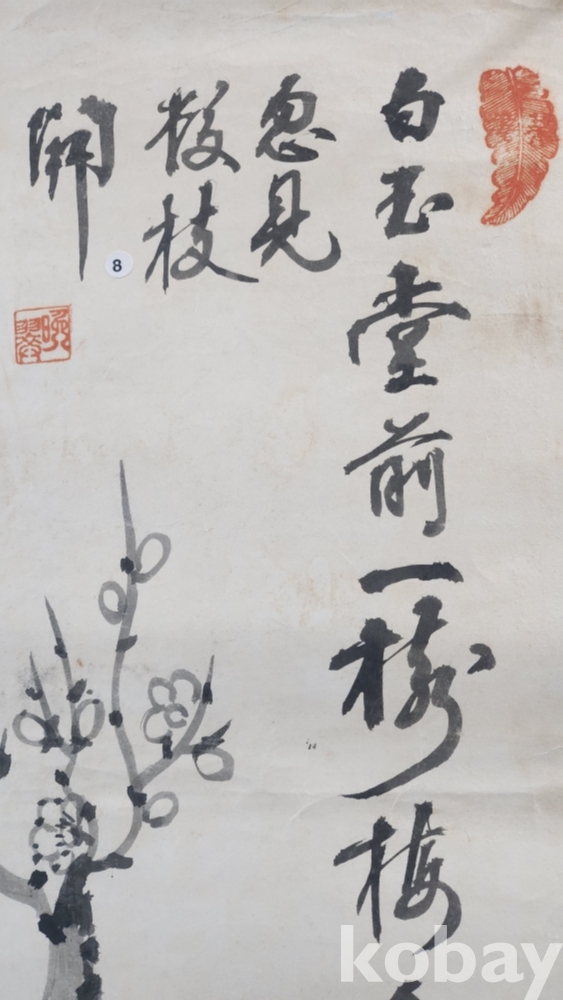 白玉堂前一樹梅
忽見
數枝
開
8
kobay